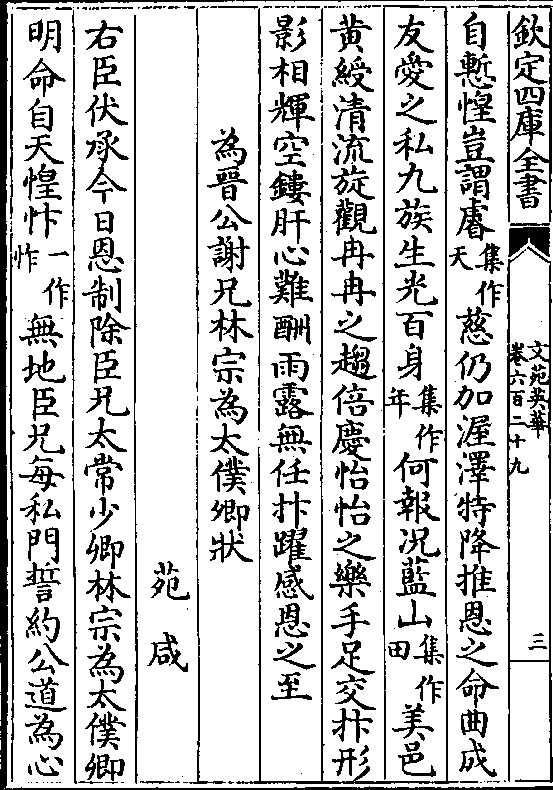 欽定四庫全書
文苑英華
卷六百二十九
三
自慙惶豈謂睿集作天慈仍加渥澤特降推恩之命曲成
友愛之私九族生光百身集作年何報况藍山集作田美邑
黄綬清流旋觀冉冉之趨倍慶怡怡之樂手足交抃形
影相輝空鏤肝心難酬雨露無任抃躍感恩之至
為晉公謝兄林宗為太僕卿狀
苑咸
右臣伏承今日恩制除臣兄太常少卿林宗為太僕卿
明命自天惶忭一作怍無地臣兄每私門誓約公道為心